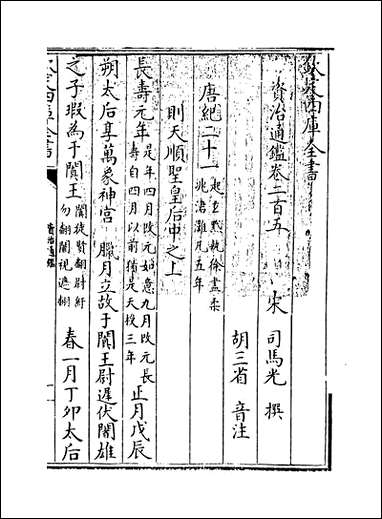 欽定四庫全書
資治通鑑卷二百五
宋 司馬光 撰
胡三省 音注
唐紀二十一 起玄黓執徐盡柔
兆涒灘凡五年
則天順聖皇后中之上
長壽元年 是年四月改元如意九月改元長
壽自四月以前猶是天授三年 正月戊辰
朔太后享萬象神宮 臘月立故于闐王尉遲伏闍雄
之子瑕為于闐王 闐徒賢翻尉紆
勿翻闍視遮翻 春一月丁卯太后
欽定四庫全書
資治通鑑